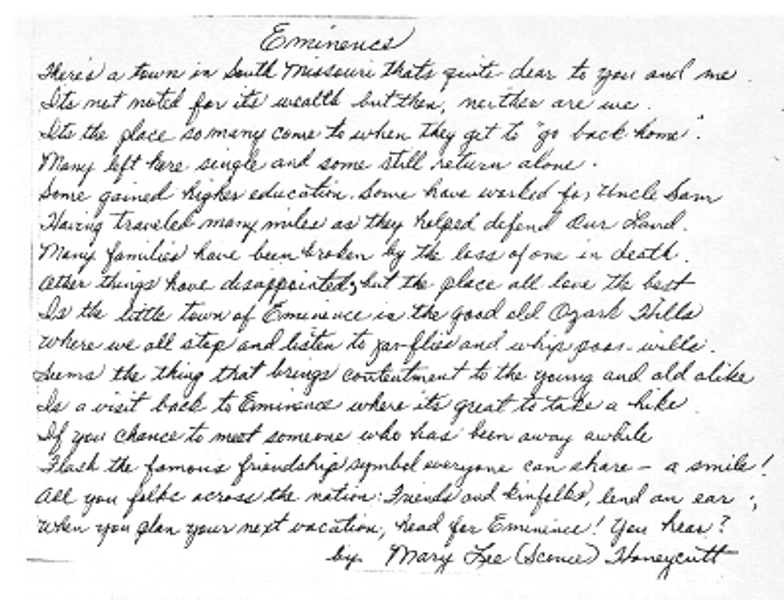 Eminence
There's a town in South Missouri that's quite dear to you and me.
Its not noted for its wealth but then, neither are we.
Its the place so many come to when they get to "go back home".
Many left here single and some still return alone.
Some gained higher education. Some have worked for Uncle Sam
Having traveled many miles as they helped defend Our Land.
Many families have been broken by the loss of one in death.
Other things have disappointed, but the place all love the best
Is the little town of Eminence in the good old Ozark Hills
Where we all stop and listen to jar-flies and whip poor wills.
Seems the thing that brings contentment to the young and old alike
Is a visit back to Eminence where it's great to take a hike
If you chance to meet someone who has been away awhile
Flash the famous friendship symbol everyone can share - a smile!
All you folks across the nation: Friends and kinfolks, lend an ear;
When you plan your next vacation, head for Eminence! You hear?
by Mary Lee (Sconce) Honeycutt